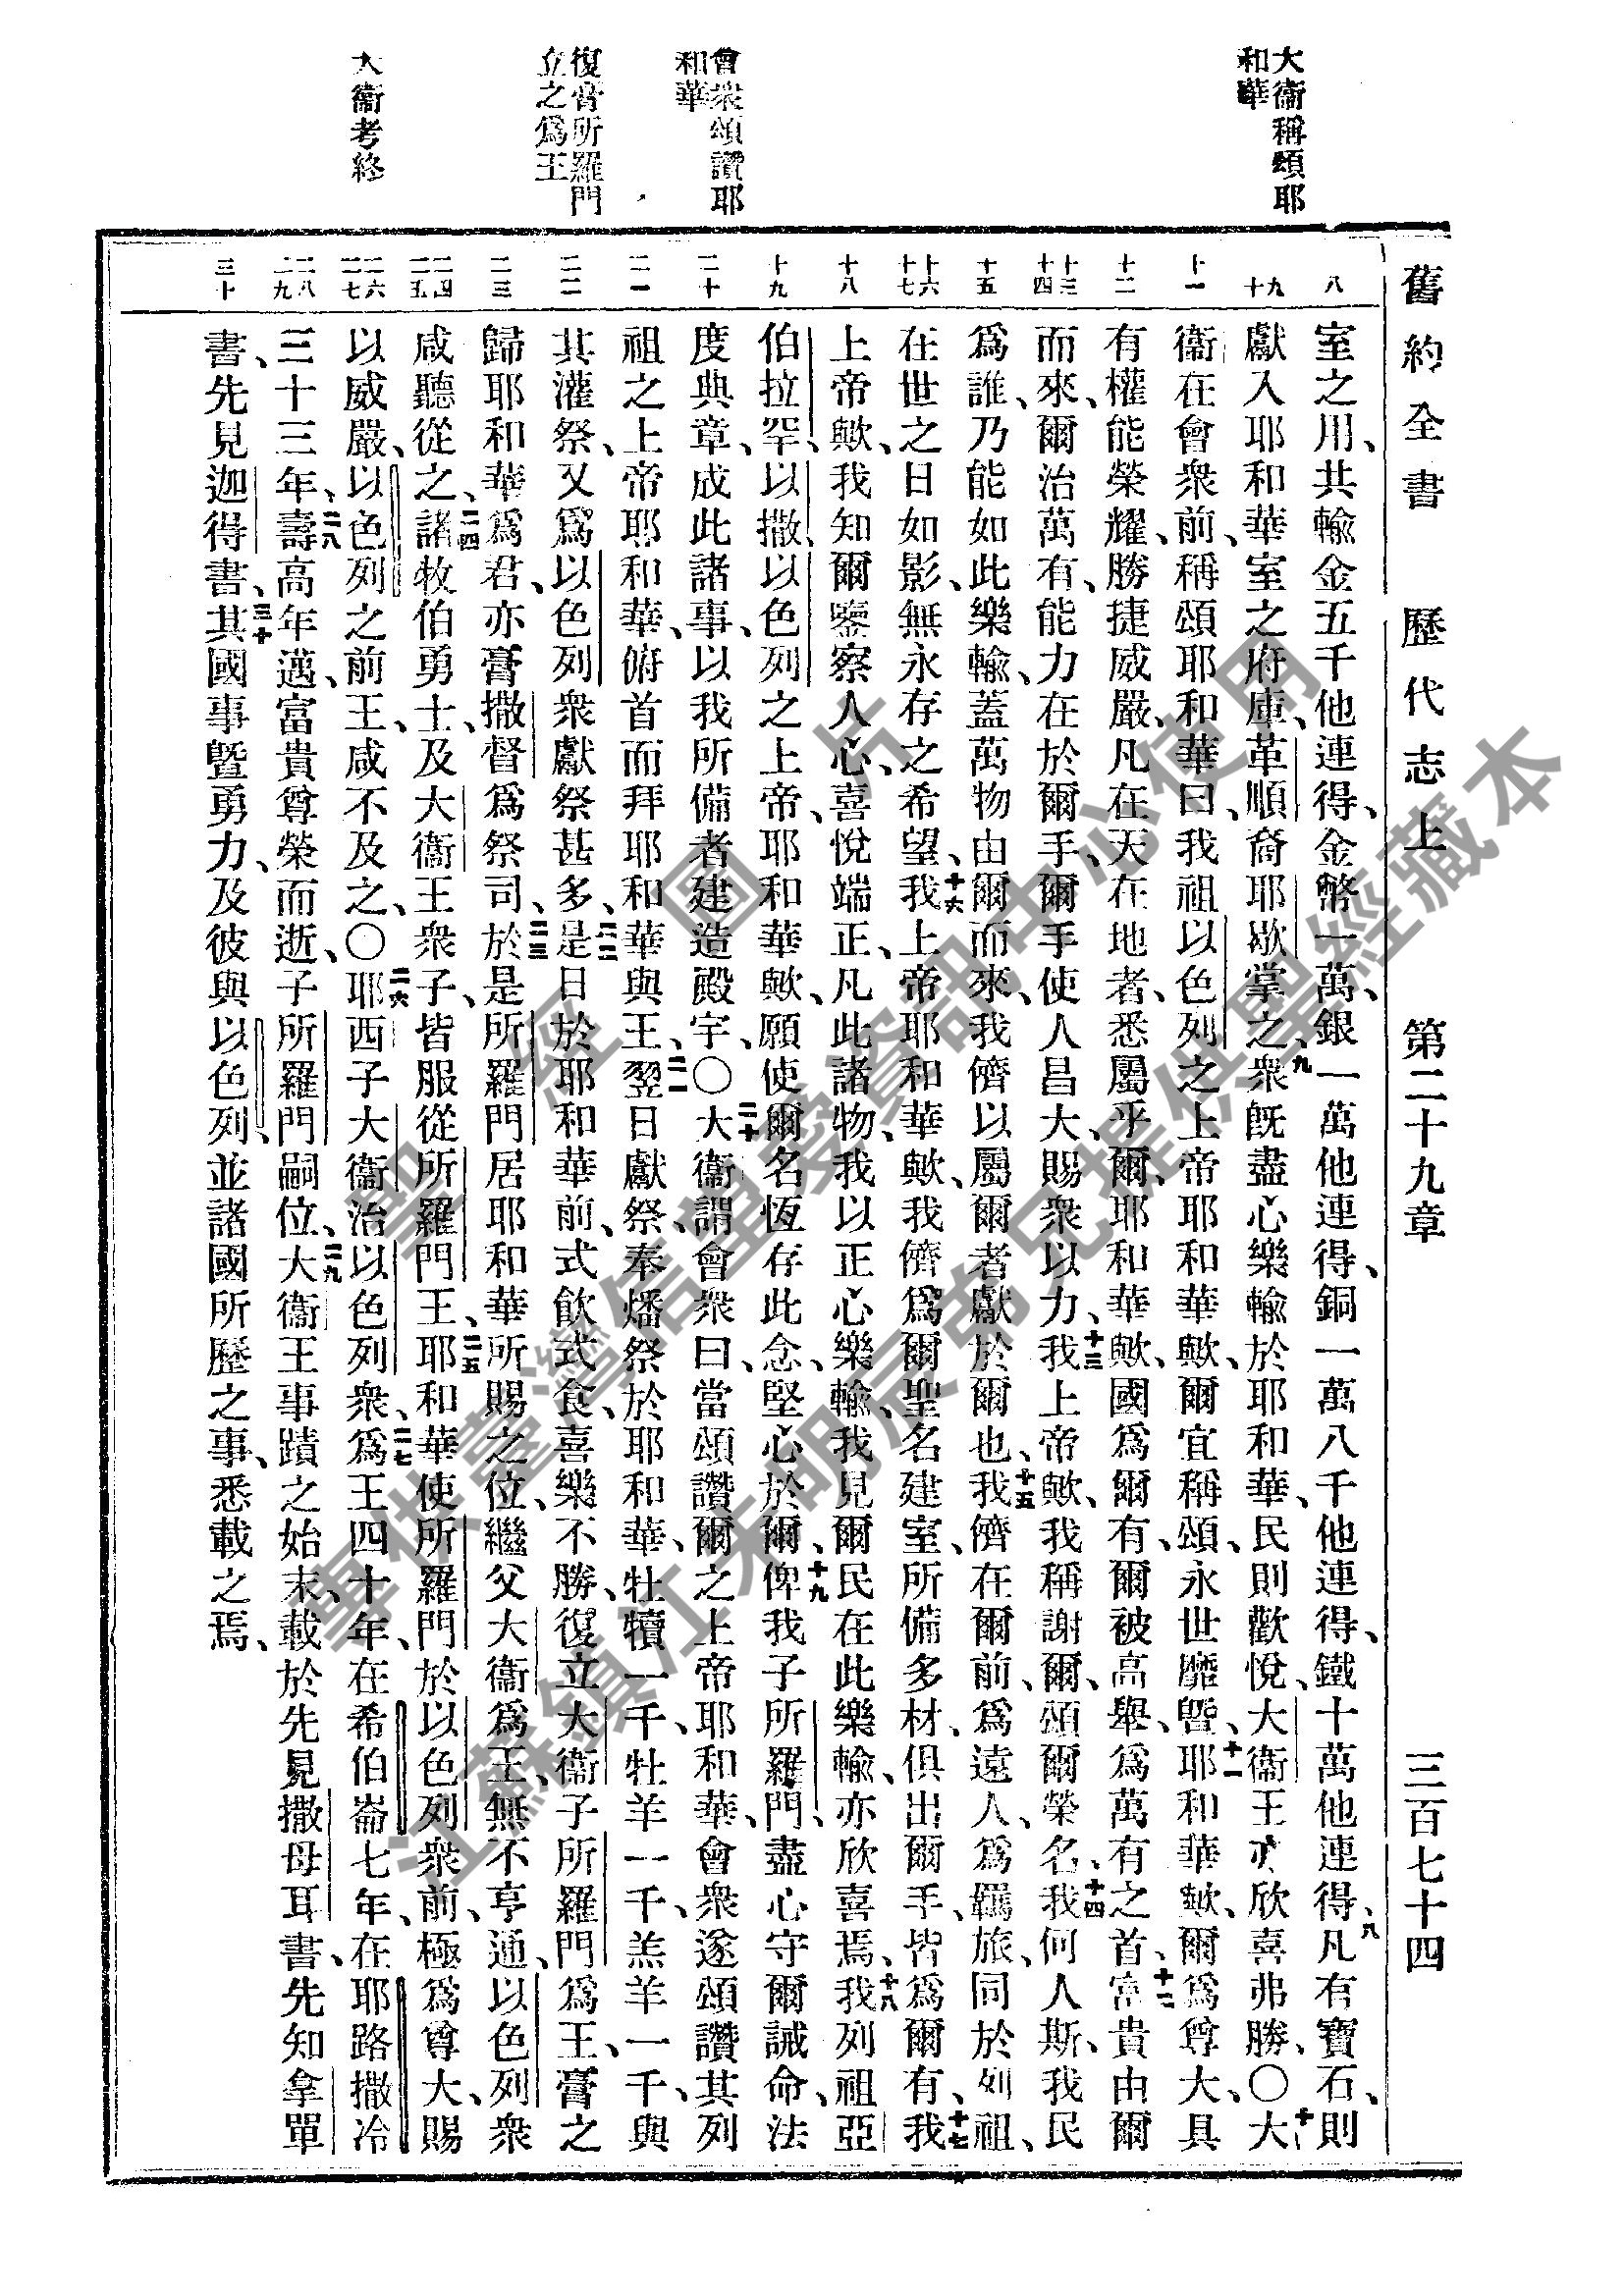 舊約全書 歷代志上 第二十九章 三百七十四
大衞稱頌耶
和華
會衆頌讚耶
和華
復膏所羅門
立之爲王
大衞考終
八
九 十
十一
十二
十三 十四
十五
十六 十七
十八
十九
二十
二一
二二
二三
二四 二五
二六 二七
二八 二九
三十
室之用、共輸金五千他連得、金幣一萬、銀一萬他連得、銅一萬八千他連得、鐵十萬他連得、八凡有寶石、則
獻入耶和華室之府庫、革順裔耶歇掌之、九衆既盡心樂輸於耶和華、民則歡悅、大衞王亦欣喜弗勝、○十大
衞在會衆前、稱頌耶和華曰、我祖以色列之上帝耶和華歟、爾宜稱頌、永世靡曁、十一耶和華歟、爾爲尊大、具
有權能榮耀、勝捷威嚴、凡在天在地者、悉屬乎爾、耶和華歟、國爲爾有、爾被高舉、爲萬有之首、十二富貴由爾
而來、爾治萬有、能力在於爾手、爾手使人昌大、賜衆以力、十三我上帝歟、我稱謝爾、頌爾榮名、十四我何人斯、我民
爲誰、乃能如此樂輸、蓋萬物由爾而來、我儕以屬爾者獻於爾也、十五我儕在爾前、爲遠人、爲羈旅、同於列祖、
在世之日如影、無永存之希望、十六我上帝耶和華歟、我儕爲爾聖名建室、所備多材、俱出爾手、皆爲爾有、十七我
上帝歟、我知爾鑒察人心、喜悅端正、凡此諸物、我以正心樂輸、我見爾民在此樂輸、亦欣喜焉、十八我列祖亞
伯拉罕、以撒、以色列之上帝、耶和華歟、願使爾名恆存此念、堅心於爾、十九俾我子所羅門、盡心守爾誡命、法
度典章、成此諸事、以我所備者建造殿宇、○二十大衞謂會衆曰、當頌讚爾之上帝耶和華、會衆遂頌讚其列
祖之上帝耶和華、俯首而拜耶和華與王、二一翌日獻祭、奉燔祭於耶和華、牡犢一千、牡羊一千、羔羊一千、與
其灌祭、又爲以色列衆獻祭甚多、二二是日於耶和華前、式飲式食、喜樂不勝、復立大衞子所羅門爲王、膏之
歸耶和華爲君、亦膏撒督爲祭司、二三於是所羅門居耶和華所賜之位、繼父大衞爲王、無不亨通、以色列衆
咸聽從之、二四諸牧伯勇士、及大衞王衆子、皆服從所羅門王、二五耶和華使所羅門於以色列衆前、極爲尊大、賜
以威嚴、以色列之前王、咸不及之、○二六耶西子大衞治以色列衆、二七爲王四十年、在希伯崙七年、在耶路撒冷
三十三年、二八壽高年邁、富貴尊榮而逝、子所羅門嗣位、二九大衞王事蹟之始末、載於先見撒母耳書、先知拿單
書、先見迦得書、三十其國事曁勇力、及彼與以色列、並諸國所歷之事、悉載之焉、
聖經圖片
專供臺灣信望愛資訊中心使用
江蘇鎮江朱明辰弟兄提供聖經藏本